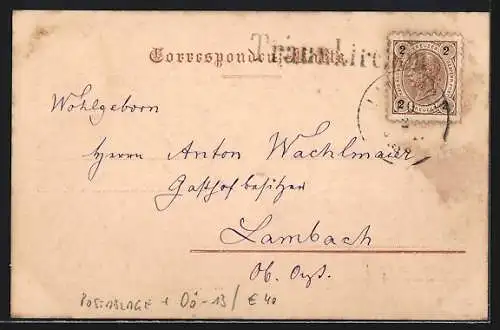 Correspondenz-Karte
Traunkirchen
2 2
2 2
Wohlgeborn
Herrn Anton Wachlmaier
Gasthofbesitzer
Lambach
Ob. Oest.
POSTABLAGE + OÖ-13/ € 40